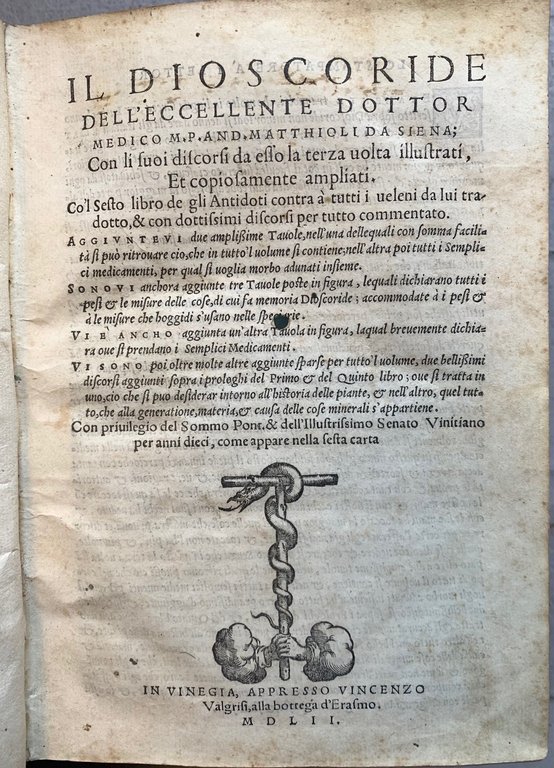 IL DIOSCORIDE
DELL'ECCELLENTE DOTTOR
MEDICO M.P. AND. MATTHIOLI DA SIENA;
Con li suoi discorsi da esso la terza uolta illustrati,
Et copiosamente ampliati.
Co'l Sesto libro de gli Antidoti contra à tutti i ueleni da lui tra-
dotto, & con dottissimi discorsi per tutto commentato.
AGGIVNTEVI due amplißime Tauole, nell'una dellequali con somma facili-
tà si può ritrouare cio, che in tutto'l uolume si contiene; nell'altra poi tutti i Sempli-
ci medicamenti, per qual si uoglia morbo adunati insieme.
SONOVI anchora aggiunte tre Tauole poste in figura, lequali dichiarano tutti i
pesi & le misure delle cose, di cui fa memoria Dioscoride; accommodate à i pesi &
à le misure che hoggidi s'usano nelle speciarie.
VI È ANCHO aggiunta un'altra Tauola in figura, laqual breuemente dichia-
ra oue si prendano i Semplici Medicamenti.
VI SONO poi oltre molte altre aggiunte sparse per tutto'l uolume, due bellißimi
discorsi aggiunti sopra i prologhi del Primo & del Quinto libro; oue si tratta in
uno, cio che si puo desiderar intorno all'historia delle piante, & nell'altro, quel tut-
to, che alla generatione, materia, & causa delle cose minerali s'appartiene.
Con priuilegio del Sommo Pont. & dell'Illustrissimo Senato Vinitiano
per anni dieci, come appare nella sesta carta
IN VINEGIA, APPRESSO VINCENZO
Valgrisi, alla bottega d'Erasmo.
MDLII.